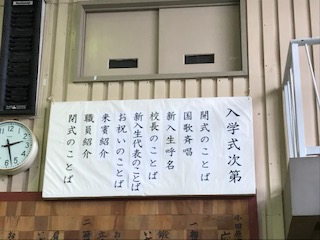 入学式次第
開式のことば
国歌斉唱
新入生呼名
校長のことば
新入生代表のことば
お祝いのことば
来賓紹介
職員紹介
閉式のことば